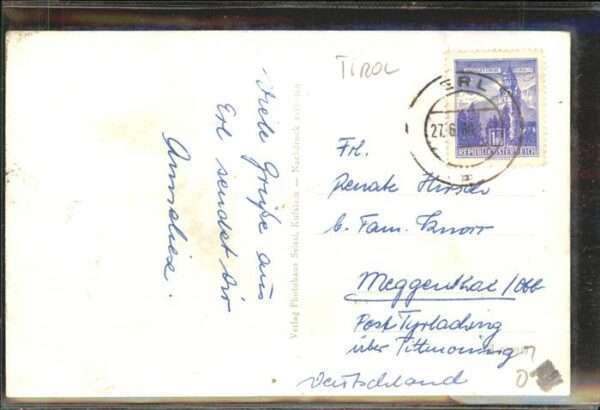 Liebe Grüße aus
Erl sendet Dir
Anneliese.
Verlag Photohaus Kufstein — Nachdruck verboten
TIROL
ERL
27.6.
REPUBLIK ÖSTERREICH
Frl.
Renate
b. Fam. Knorr
Meggenthal/Obb
Post Tyrlaching
über Tittmoning
Deutschland